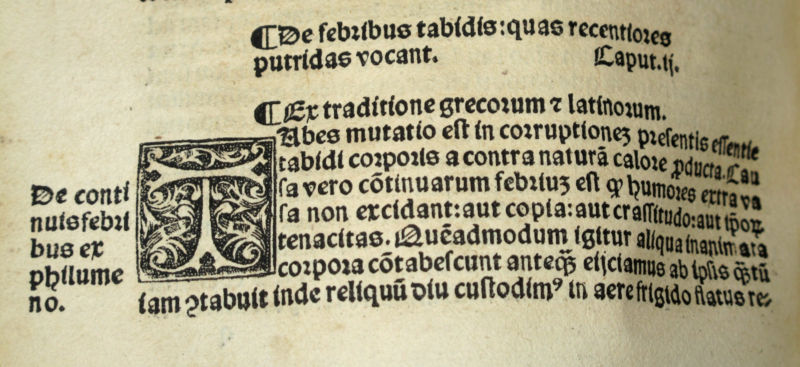 ¶De febribus tabidis:quas recentiores
putridas vocant. Caput.ij.
¶Ex traditione grecorum ⁊ latinorum.
TAbes mutatio est in corruptioneꝫ presentis essentie
tabidi corporis a contra naturã calore ꝓducta. Cau
sa vero cõtinuarum febriuꝫ est ꝙ humores extra va
sa non excidant:aut copia:aut crassitudo:aut ip̃oꝝ
tenacitas. Quẽadmodum igitur aliqua inanimata
corpora cõtabescunt anteꝙ̃ eijciamus ab ipsis ꝙ̃tũ
iam ꝯtabuit inde reliquũ diu custodimꝰ in aere frigido flatus re-
De conti
nuis febri
bus ex
philume
no.